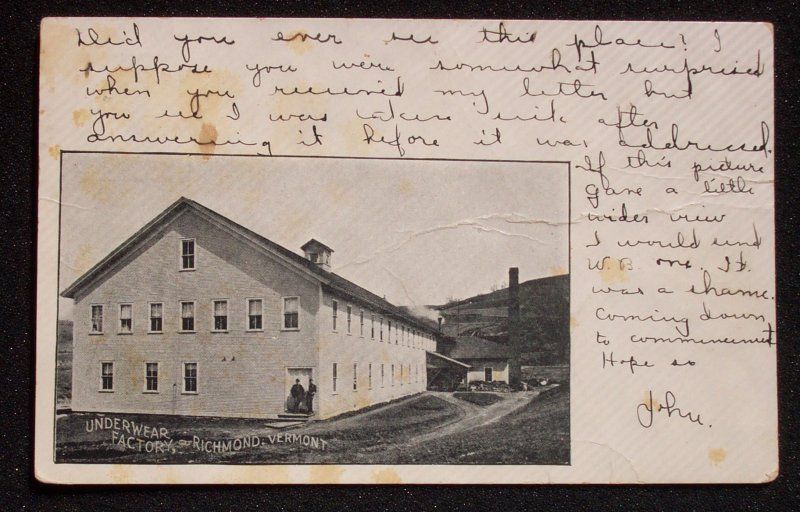 Did you ever see this place? I
suppose you were somewhat surprised
when you received my letter but
you see I was taken sick after
answering it before it was addressed.
If this picture
gave a little
wider view
I would send
W.B. one. It
was a shame.
Coming down
to commencement
Hope so
John.
UNDERWEAR
FACTORY. RICHMOND. VERMONT